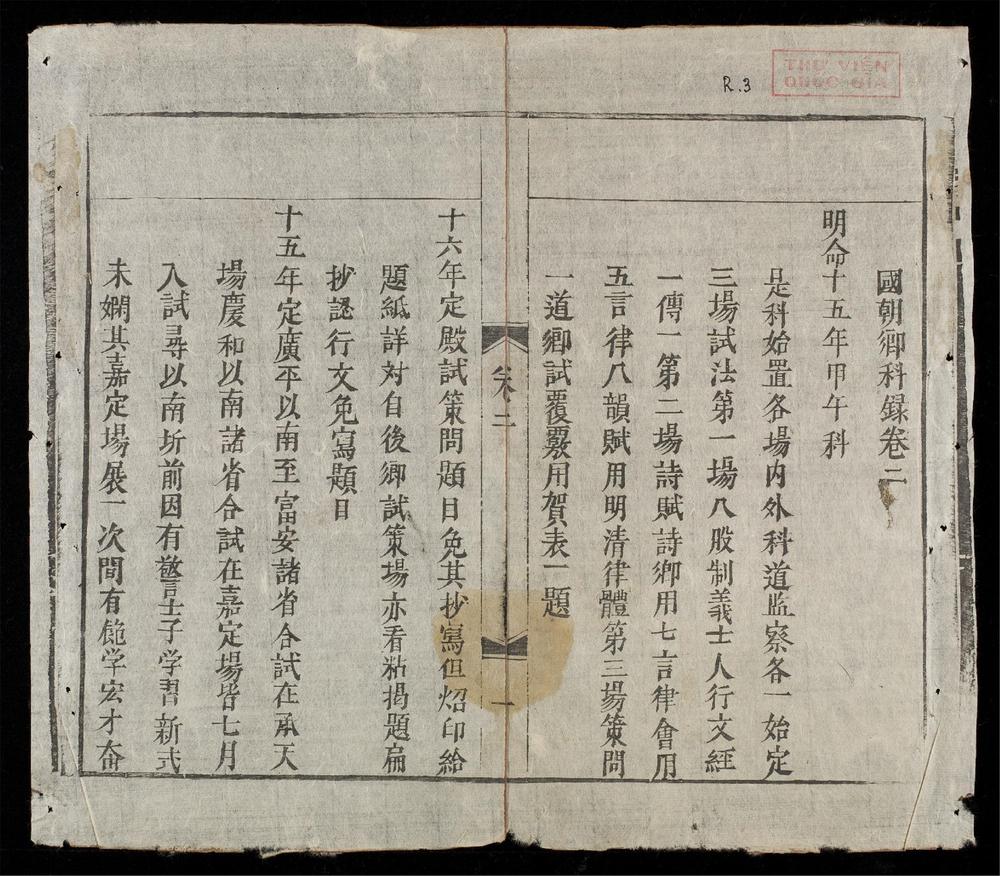 THƯ VIỆN
QUỐC GIA
R.3
國朝鄉科錄卷二
明命十五年甲午科
是科始置各場內外科道監察各一始定
三場試法第一場八股制義士人行文經
一傳一第二場詩賦詩鄉用七言律會用
五言律八韻賦用明清律體第三場策問
一道鄉試覆覈用賀表一題
卷二
一
十六年定殿試策問題目免其抄寫但炤印給
題紙詳对自後鄉試策場亦看粘揭題扁
抄認行文免寫題目
十五年定廣平以南至富安諸省合試在承天
場慶和以南諸省合試在嘉定場皆七月
入試尋以南圻前因有警士子学習新式
未嫻其嘉定場展一次間有飽学宏才奋